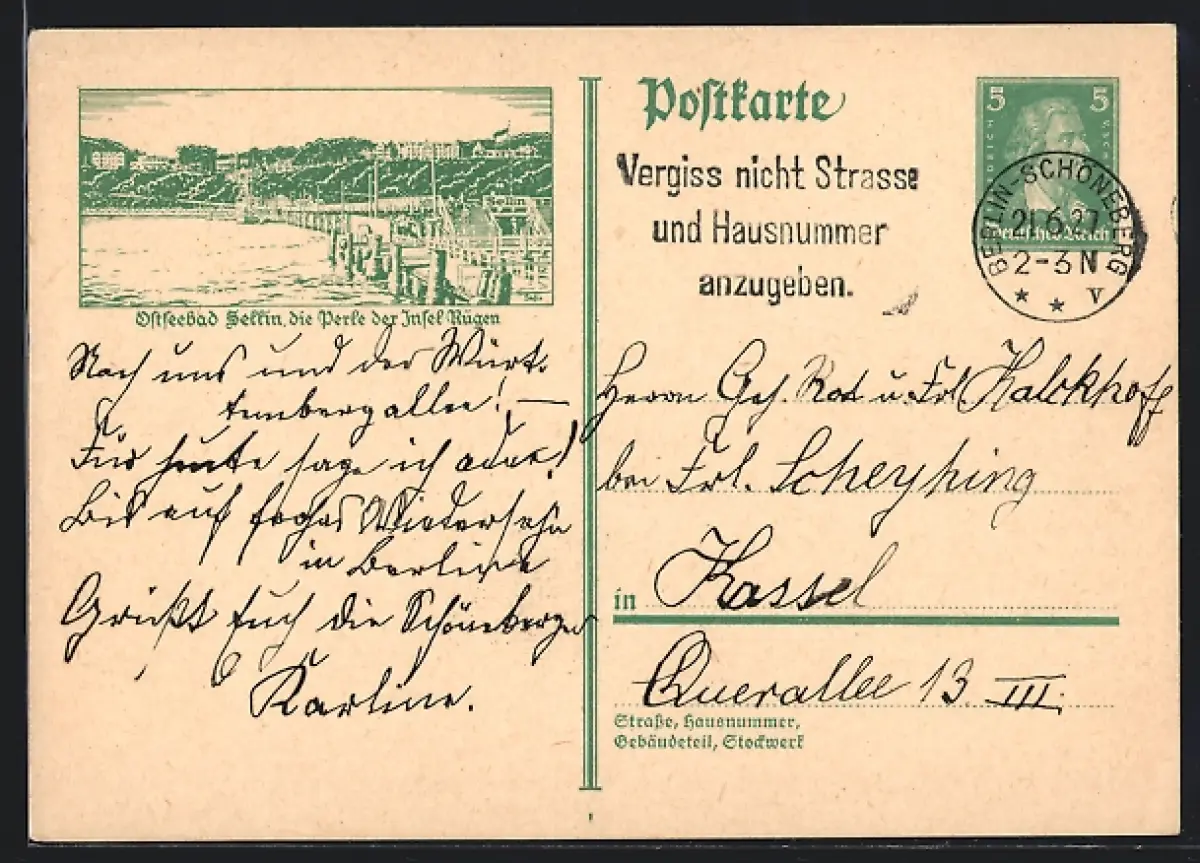 Postkarte
5 5
Vergiss nicht Strasse
und Hausnummer
anzugeben.
BERLIN-SCHÖNEBERG
21.6.27
2-3 N
* * V
Deutsches Reich
Ostseebad Sellin, die Perle der Insel Rügen
Nach uns und der Würt-
tembergallee! —
Für heute sage ich adee!
Bis auf frohes Wiedersehn
in Berline
Grüßt Euch die Schöneberger
Karline.
Herrn Geh. Rat u. Frl. Kalckhoff
bei Frl. Scheyhing
in Kassel
Querallee 13 III.
Straße, Hausnummer,
Gebäudeteil, Stockwerk